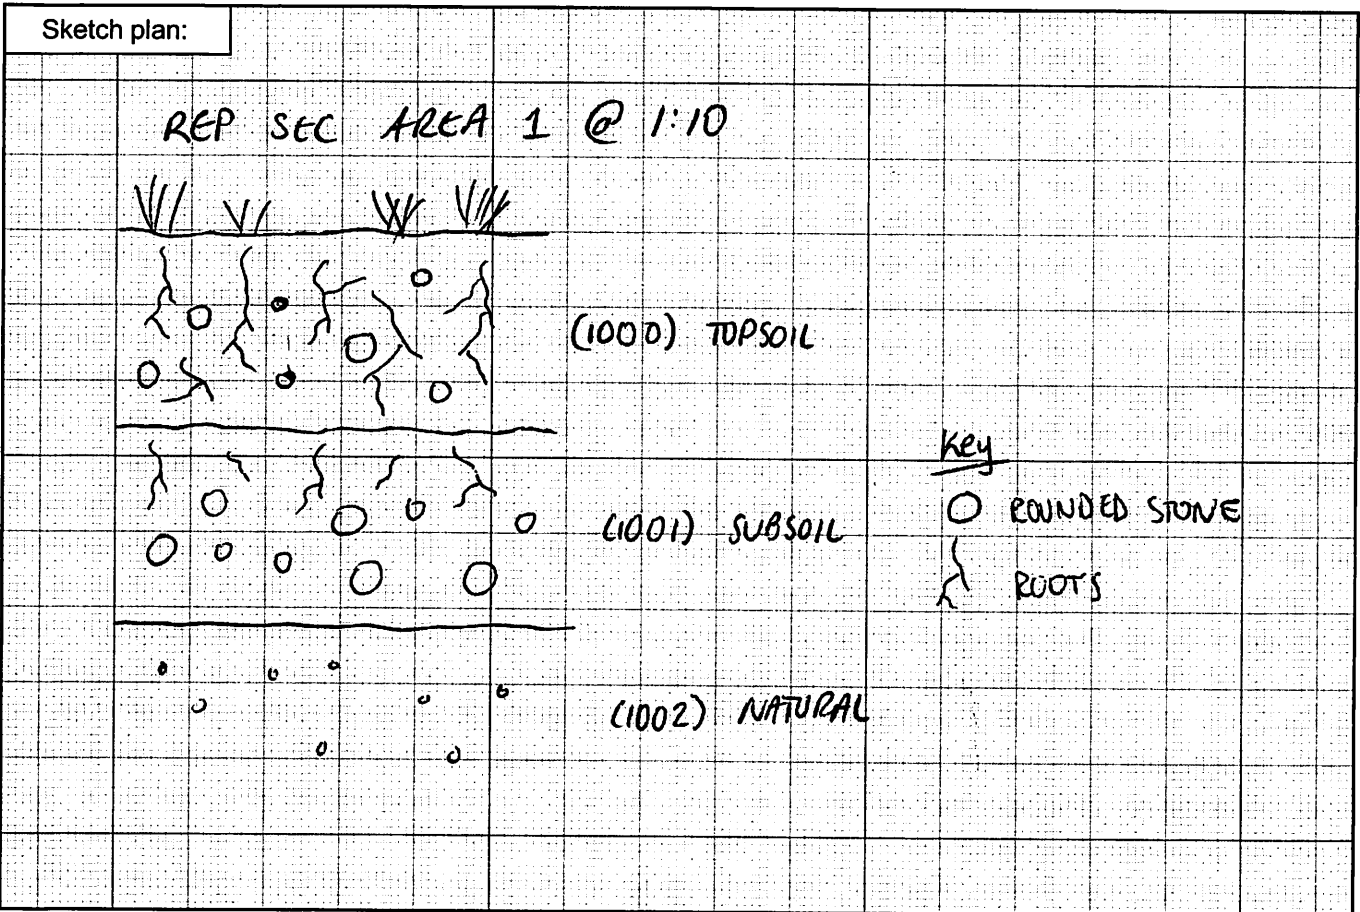 Sketch plan:
REP SEC AREA 1 @ 1:10
(1000) TOPSOIL
(1001) SUBSOIL
(1002) NATURAL
Key
ROUNDED STONE
ROOTS